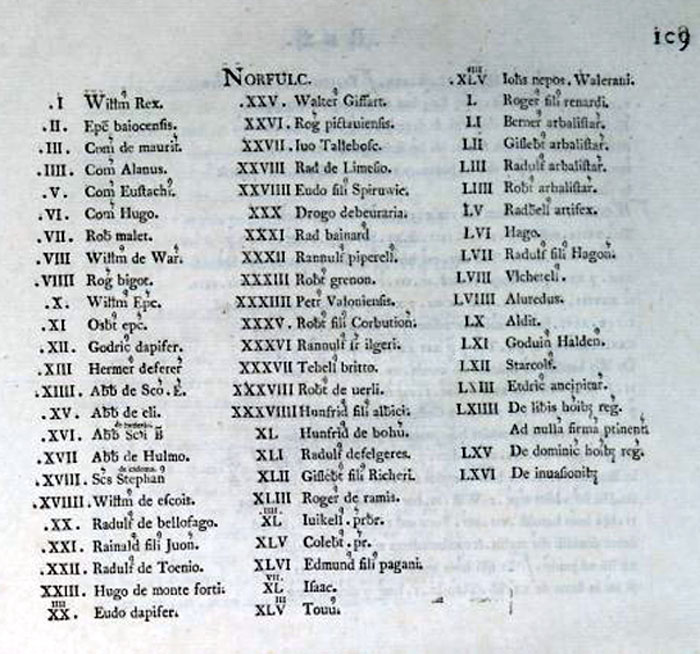 109
NORFULC.
.I Willm Rex.
.II. Epc baiocensis.
.III. Com de maurit.
.IIII. Com Alanus.
.V. Com Eustachi.
.VI. Com Hugo.
.VII. Rob malet.
.VIII Willm de War.
.VIIII Rog bigot.
.X. Willm Epc.
.XI Osbt epc.
.XII. Godric dapifer.
.XIII Hermer deferer
.XIIII. Abb de Sco. E.
.XV. Abb de eli.
.XVI. Abb Sci B
.XVII Abb de Hulmo.
.XVIII. Scs Stephan
.XVIIII. Willm de escois.
.XX. Radulf de bellofago.
.XXI. Rainald fili Juon.
.XXII. Radulf de Toenio.
XXIII. Hugo de monte forti.
IIII
XX. Eudo dapifer.
.XXV. Walter Giffart.
XXVI. Rog pictauiensis.
XXVII. Iuo Tallebosc.
XXVIII Rad de Limesio.
XXVIIII Eudo fili Spiruwic.
XXX Drogo debeuraria.
XXXI Rad bainard
XXXII Rannulf piperelli.
XXXIII Robt grenon.
XXXIIII Petr Valoniensis.
XXXV. Robt fili Corbution.
XXXVI Rannulf fr ilgeri.
XXXVII Tehell britto.
XXXVIII Robt de uerli.
XXXVIIII Hunfrid fili albici.
XL Hunfrid de bohu.
XLI Radulf defelgeres.
XLII Gislebt fili Richeri.
XLIII Roger de ramis.
IIII
XL Iuikell. prbr.
XLV Colebt. pr.
XLVI Edmund fili pagani.
VII.
XL Isaac.
III
XLV Touu.
IIII
.XLV Iohs nepos. Walerani.
L Roger fili renardi.
LI Berner arbalistar.
LII Gislebt arbalistar.
LIII Radulf arbalistar.
LIIII Robt arbalistar.
LV Radbell artifex.
LVI Hago.
LVII Radulf fili Hagoni.
LVIII Vlchetell.
LVIIII Aluredus.
LX Aldit.
LXI Goduin Halden.
LXII Starcolf.
LXIII Etdric ancipitar.
LXIIII De libis hoibz reg.
Ad nulla firma ptinenti
LXV De dominic hoibz reg.
LXVI De inuasionibz